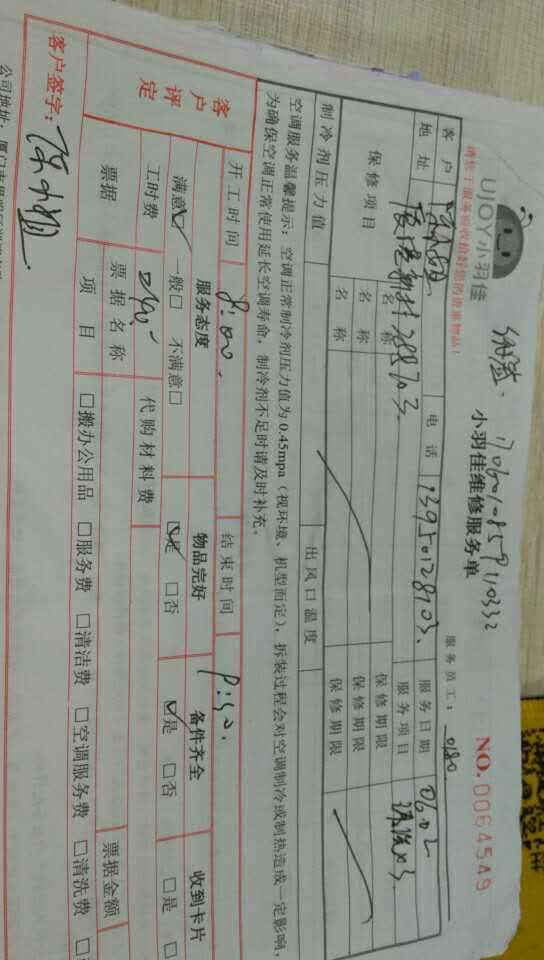 UJOY小羽佳
小羽佳维修服务单
1706010859110332
服务员工：0180
NO.0064549
请您于服务前收拾好您的贵重物品！
客户 电话 13950128703 服务日期 06.02
地址 服务项目
保修项目 名称 保修期限
名称 保修期限
制冷剂压力值 出风口温度
空调服务温馨提示：空调正常制冷剂压力值为0.45mpa（视环境、机型而定），拆装过程会对空调制冷或制热造成一定影响，
为确保空调正常使用延长空调寿命，制冷剂不足时请及时补充。
客户评定
开工时间 8:00 结束时间 9:50
服务态度 物品完好 备件齐全 收到卡片
满意☑ 一般□ 不满意□ ☑是 □否 ☑是 □否 □是
工时费 190 代购材料费
票据 票据名称 票据金额
项目 □搬办公用品 □服务费 □清洁费 □空调服务费 □清洗费
客户签字：